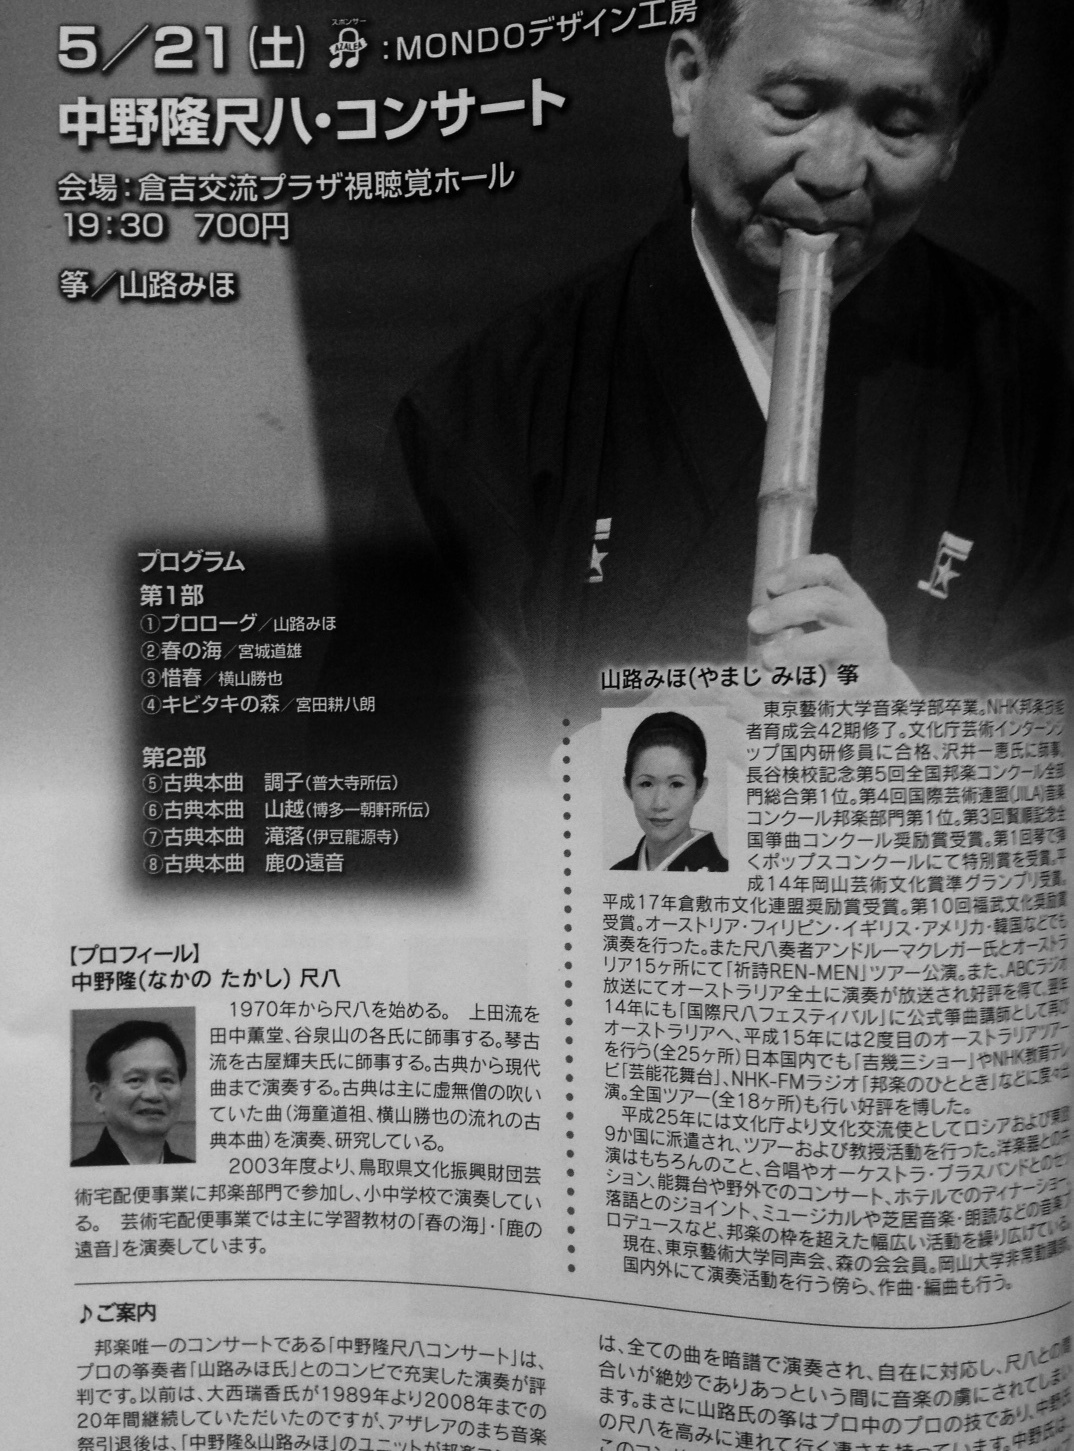 5／21(土) スポンサー AZALEA :MONDOデザイン工房
中野隆尺八・コンサート
会場：倉吉交流プラザ視聴覚ホール
19：30　700円
箏／山路みほ
プログラム
第1部
①プロローグ／山路みほ
②春の海／宮城道雄
③惜春／横山勝也
④キビタキの森／宮田耕八朗
第2部
⑤古典本曲　調子(普大寺所伝)
⑥古典本曲　山越(博多一朝軒所伝)
⑦古典本曲　滝落(伊豆龍源寺)
⑧古典本曲　鹿の遠音
【プロフィール】
中野隆(なかの たかし) 尺八
1970年から尺八を始める。　上田流を
田中薫堂、谷泉山の各氏に師事する。琴古
流を古屋輝夫氏に師事する。古典から現代
曲まで演奏する。古典は主に虚無僧の吹い
ていた曲(海童道祖、横山勝也の流れの古
典本曲)を演奏、研究している。
2003年度より、鳥取県文化振興財団芸
術宅配便事業に邦楽部門で参加し、小中学校で演奏してい
る。　芸術宅配便事業では主に学習教材の「春の海」・「鹿の
遠音」を演奏しています。
山路みほ(やまじ みほ) 箏
東京藝術大学音楽学部卒業。NHK邦楽技能
者育成会42期修了。文化庁芸術インターンシ
ップ国内研修員に合格、沢井一恵氏に師事。
長谷検校記念第5回全国邦楽コンクール全部
門総合第1位。第4回国際芸術連盟(JILA)音楽
コンクール邦楽部門第1位。第3回賢順記念全
国箏曲コンクール奨励賞受賞。第1回琴で弾
くポップスコンクールにて特別賞を受賞。平
成14年岡山芸術文化賞準グランプリ受賞。
平成17年倉敷市文化連盟奨励賞受賞。第10回福武文化奨励賞
受賞。オーストリア・フィリピン・イギリス・アメリカ・韓国などでも
演奏を行った。また尺八奏者アンドルーマクレガー氏とオーストラ
リア15ヶ所にて「祈詩REN-MEN」ツアー公演。また、ABCラジオ
放送にてオーストラリア全土に演奏が放送され好評を得て、翌年
14年にも「国際尺八フェスティバル」に公式箏曲講師として再び
オーストラリアへ、平成15年には2度目のオーストラリアツアー
を行う(全25ヶ所)日本国内でも「吉幾三ショー」やNHK教育テレ
ビ「芸能花舞台」、NHK-FMラジオ「邦楽のひととき」などに度々出
演。全国ツアー(全18ヶ所)も行い好評を博した。
平成25年には文化庁より文化交流使としてロシアおよび東欧
9か国に派遣され、ツアーおよび教授活動を行った。洋楽器との共
演はもちろんのこと、合唱やオーケストラ・ブラスバンドとのセッ
ション、能舞台や野外でのコンサート、ホテルでのディナーショー、
落語とのジョイント、ミュージカルや芝居音楽・朗読などの音楽プ
ロデュースなど、邦楽の枠を超えた幅広い活動を繰り広げている。
現在、東京藝術大学同声会、森の会会員。岡山大学非常勤講師。
国内外にて演奏活動を行う傍ら、作曲・編曲も行う。
♪ご案内
邦楽唯一のコンサートである「中野隆尺八コンサート」は、
プロの箏奏者「山路みほ氏」とのコンビで充実した演奏が評
判です。以前は、大西瑞香氏が1989年より2008年までの
20年間継続していただいたのですが、アザレアのまち音楽
祭引退後は、「中野隆&山路みほ」のユニットが
は、全ての曲を暗譜で演奏され、自在に対応し、尺八との間
合いが絶妙でありあっという間に音楽の虜にされてしまい
ます。まさに山路氏の箏はプロ中のプロの技であり、中野氏
の尺八を高みに連れて行く凄さを持っています。中野氏は、
このコン